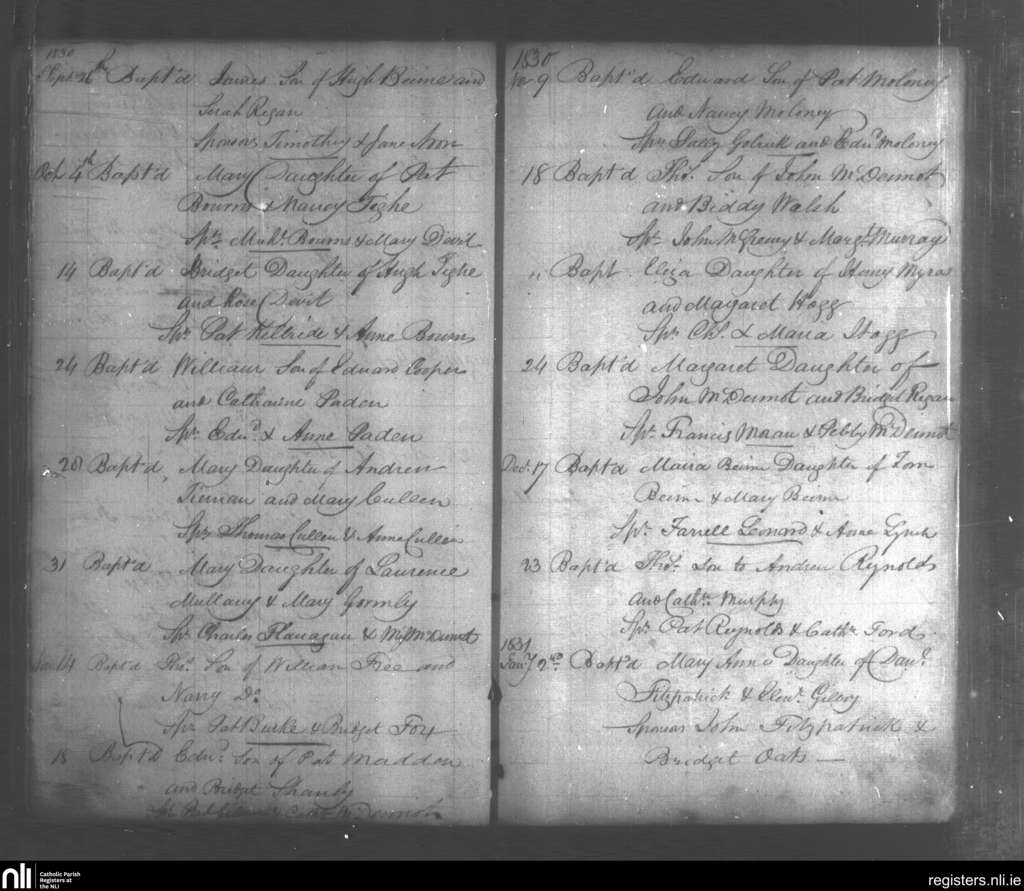 1830
Sept. 26th Bapt'd James Son of Hugh Beirne and
Sarah Regan
Sponsors Timothy & Jane
Oct 4th Bapt'd Mary Daughter of Pat
Bourns & Nancy Tighe
Sprs Bourns & Mary Devit
14 Bapt'd Bridget Daughter of Hugh Tighe
and Rose Devit
Sprs Pat & Anne Bourns
24 Bapt'd William Son of Edward Cooper
and Catharine Paden
Sprs Edwd & Anne Paden
28 Bapt'd Mary Daughter of Andrew
Tiernan and Mary Cullen
Sprs Thomas Cullen & Anne Cullen
31 Bapt'd Mary Daughter of Laurence
Mullany & Mary Gormly
Sprs Charles Flanagan & McDermot
14 Bapt'd Thos. Son of William Free and
Nancy Do
Sprs Pat Burke & Bridget Fox
18 Bapt'd Edwd. Son of Pat Madden
and Bridget Shanly
1830
9 Bapt'd Edward Son of Pat Moloney
and Nancy Moloney
Sprs and Edwd Moloney
18 Bapt'd Thos. Son of John McDermot
and Biddy Walsh
Sprs John McGreevy & Margt Murray
" Bapt Eliza Daughter of Henry Myras
and Margaret Hogg
Sprs Chs. & Maria Hogg
24 Bapt'd Margaret Daughter of
John McDermot and Bridget Regan
Sprs Francis Moran & McDermot
Decr. 17 Bapt'd Maria Beirn Daughter of Tom
Beirn & Mary Beirn
Sprs Farrell Leonard & Anne Lynch
23 Bapt'd Thos. Son to Andrew Rynolds
and Cathe. Murphy
Sprs Pat Reynolds & Cathe Ford
1831
Jany 2nd Bapt'd Mary Ann a Daughter of Danl.
Fitzpatrick & Elenr. Gilroy
Sponsors John Fitzpatrick &
Bridget Oats —
nli
Catholic Parish
Registers at
the NLI
registers.nli.ie